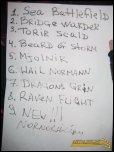 1. SEA BATTLEFIELD
2. BRIDGE WARDER
3. TORIR SEALD
4. BEARD OF STORM
5. MJOLNIR
6. HAIL NORMANN
7. DRAKONS GRIN
8. RAVEN FLIGHT
9. NEW !!!